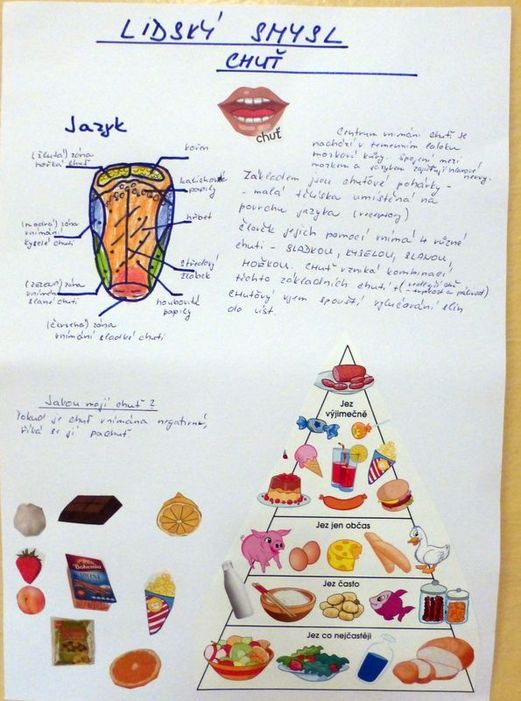 LIDSKÝ SMYSL
CHUŤ
chuť
Jazyk
(žlutá) zóna
hořká chuť
(modrá) zóna
vnímání
kyselé chuti
(zelená) zóna
vnímání
slané chuti
(červená) zóna
vnímání sladké chuti
kořen
kalichovité
papily
hřbet
středový
žlábek
houbovité
papily
Centrum vnímání chuti je
nachází v temenním laloku
mozkové kůry. Spojení mezi
mozkem a jazykem zajišťují hlavové
nervy.
Základem jsou chuťové pohárky -
- malá tělíska umístěná na
povrchu jazyka (receptory)
Člověk jejich pomocí vnímá 4 různé
chuti - SLADKOU, KYSELOU, SLANOU,
HOŘKOU. Chuť vzniká kombinací
těchto základních chutí +
Chuťový vjem spouští vylučování slin
do úst.
Jakou mají chuť?
Pokud je chuť vnímána negativně,
říká se jí pachuť.
Bohemia
Jez
výjimečně
Jez jen občas
Jez často
Jez co nejčastěji